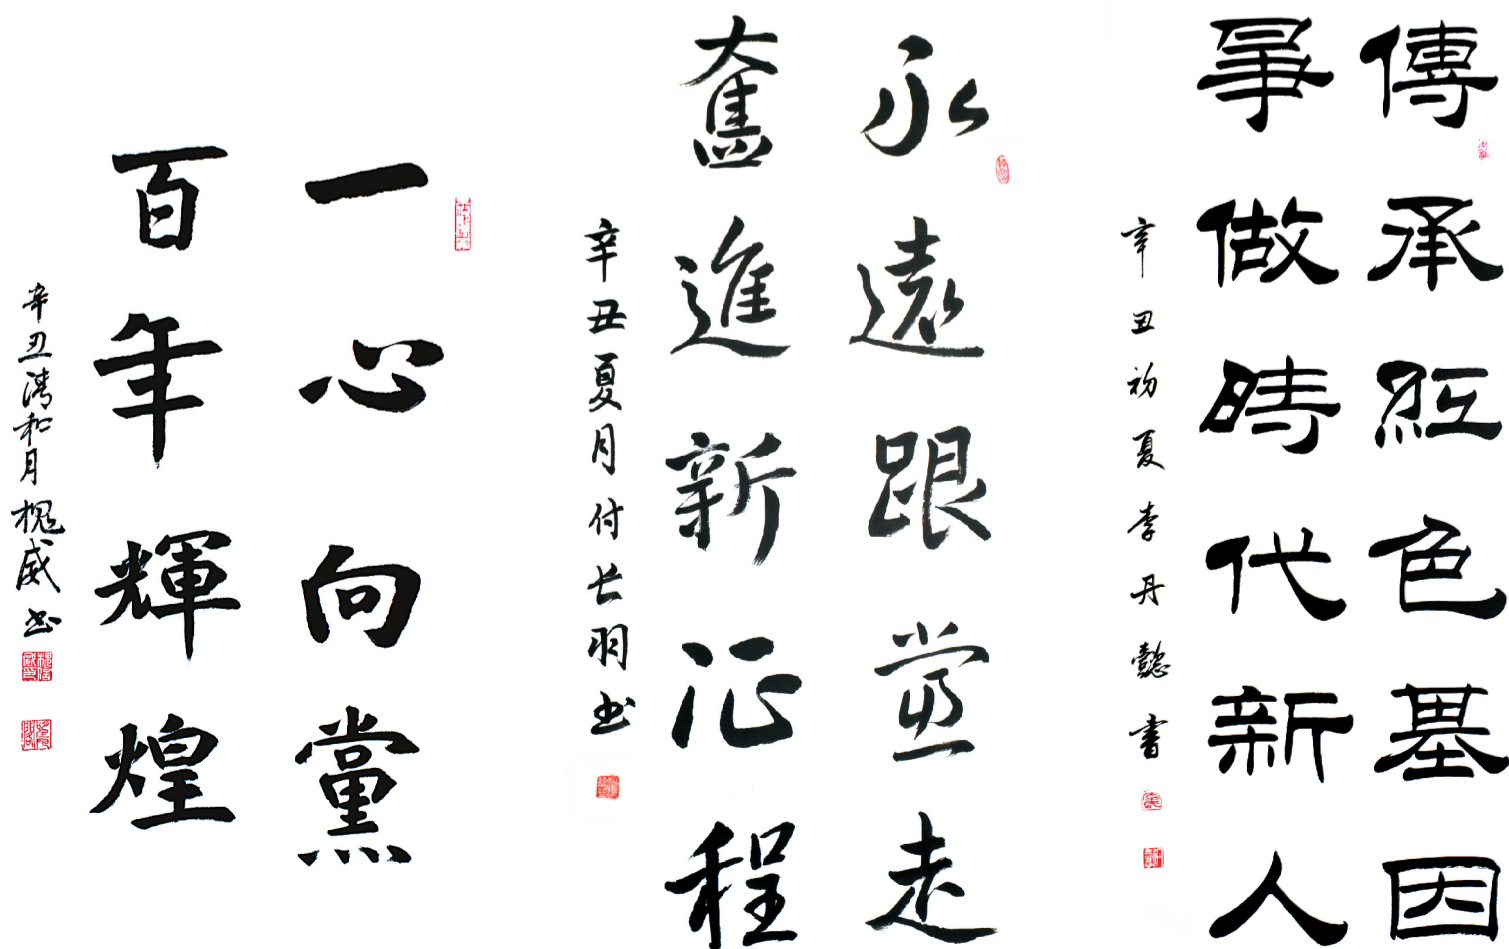 傳承紅色基因
爭做時代新人
辛丑初夏李丹懿書
永遠跟党走
奮進新征程
辛丑夏月付长羽书
一心向黨
百年輝煌
辛丑清和月槐威书